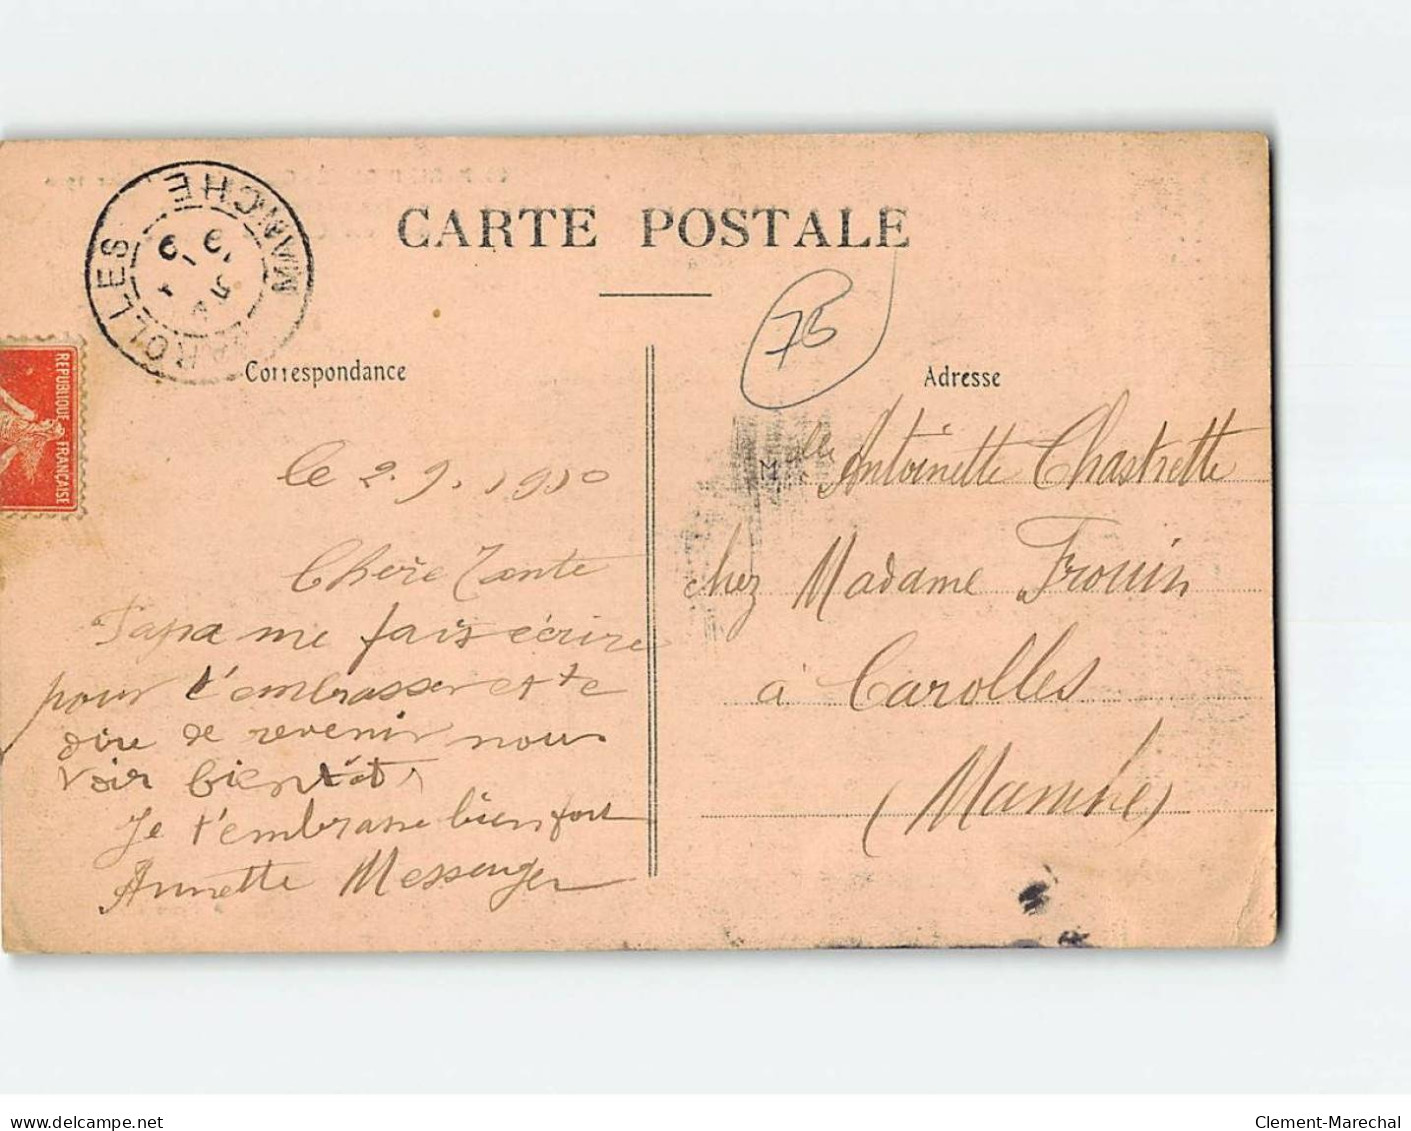 CARTE POSTALE
MANCHE
CAROLLES
REPUBLIQUE FRANÇAISE
Correspondance
le 2.9.1910
Chère Tante
Papa me fais écrire
pour t'embrasser et te
dire de revenir nous
voir bientôt
Je t'embrasse bien fort
Annette Messenger
78
Adresse
Mlle Antoinette Chastrette
chez Madame Frouin
à Carolles
(Manche)
Clement-Marechal
www.delcampe.net